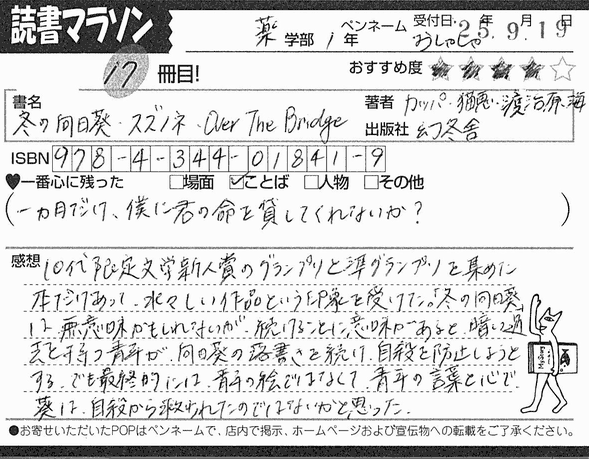 読書マラソン
薬学部 1年 ペンネーム おしゃじゃ 受付日・25年9月19日
17冊目! おすすめ度 ★★★★☆
書名 冬の向日葵・スズノネ・Over The Bridge
著者 カッパ・猫愚・渡治原海
出版社 幻冬舎
ISBN 978-4-344-01841-9
♥一番心に残った □場面 ☑ことば □人物 □その他
(一ヵ月だけ、僕に君の命を貸してくれないか?)
感想 10代限定文学新人賞のグランプリと準グランプリを集めた
本だけあって、水々しい作品という印象を受けた。「冬の向日葵」
は無意味かもしれないが、続けることに意味があると、暗い過
去を持つ青年が、向日葵の落書きを続け、自殺を防止しようと
する。でも最終的には、青年の絵ではなくて、青年の言葉と心で
葵は、自殺から救われたのではないかと思った。
●お寄せいただいたPOPはペンネームで、店内で掲示、ホームページおよび宣伝物への転載をご了承ください。